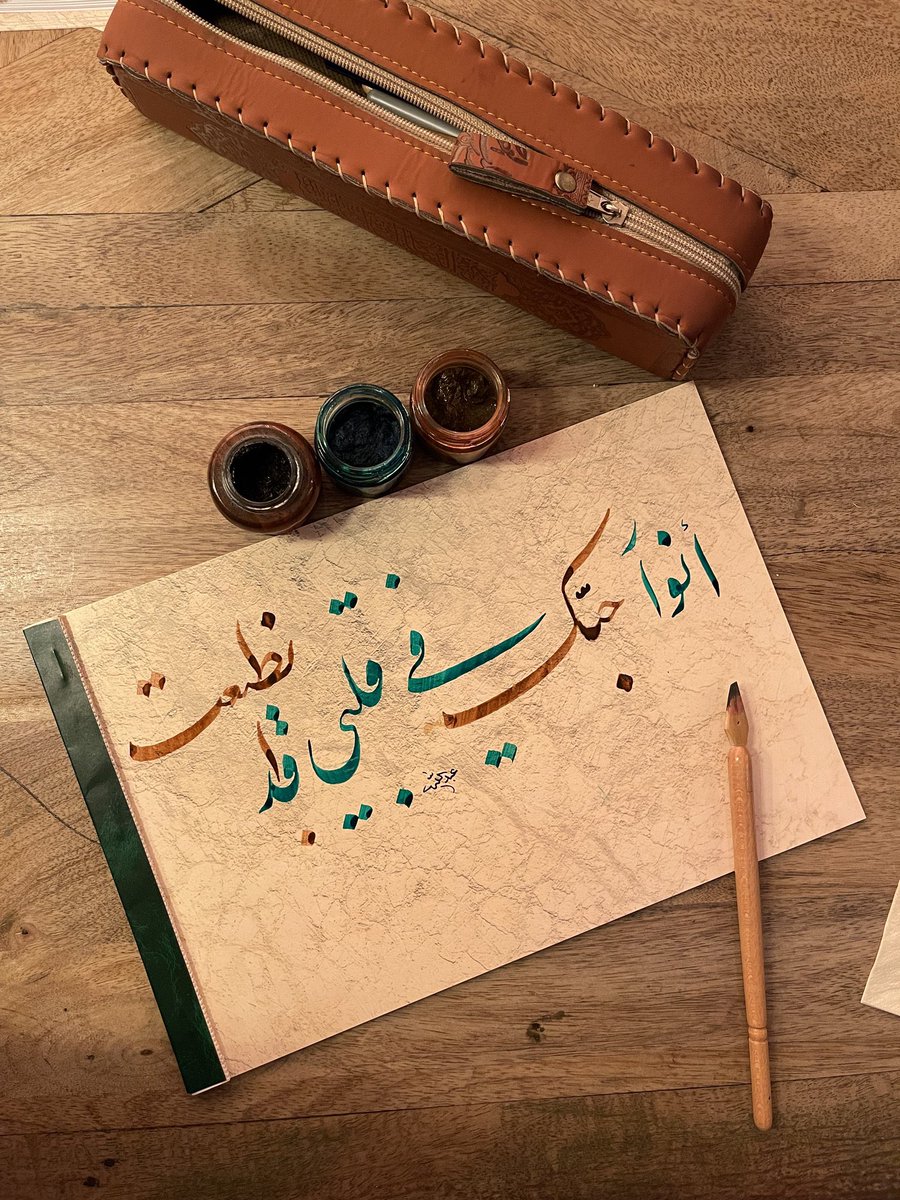 أنوار حبّك في قلبي قد انطبعت